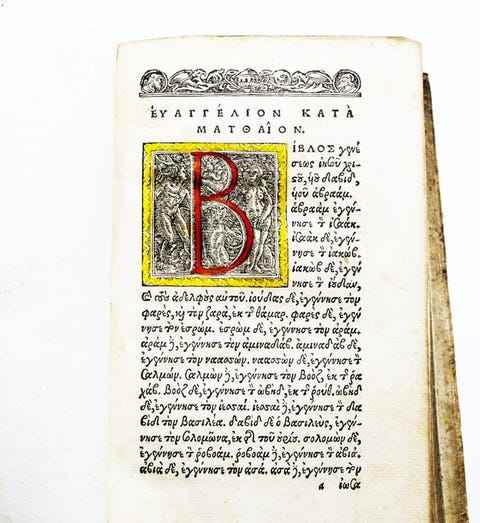 ΕΥΑΓΓΕΛΙΟΝ ΚΑΤᾺ
ΜΑΤΘΑΙ͂ΟΝ.
ΒΙΒΛΟΣ γενέ
σεως ἰησοῦ χρι
στοῦ, ὑοῦ δαβίδ,
ὑοῦ ἀβραάμ.
ἀβραὰμ ἐγέννησε τ̀ ἰσαάκ.
ἰσαὰκ δὲ, ἐγέν
νησε τ̀ ἰακώβ.
ἰακὼβ δὲ, ἐγέν
νησε τ̀ ἰούδαν,
καὶ τοὺς ἀδελφοὺς αὐτοῦ. ἰούδας δὲ, ἐγέννησε τὸν
φαρὲς, καὶ τὸν ζαρὰ, ἐκ τ̃ θάμαρ. φαρὲς δὲ, ἐγέν
νησε τὸν ἐσρώμ. ἐσρὼμ δὲ, ἐγέννησε τὸν ἀράμ.
ἀρὰμ δὲ, ἐγέννησε τὸν ἀμιναδάβ. ἀμιναδὰβ δὲ,
ἐγέννησε τὸν ναασσών. ναασσὼν δὲ, ἐγέννησε τὸν
σαλμών. σαλμὼν δὲ, ἐγέννησε τὸν βοὸζ, ἐκ τ̃ ῥα
χάβ. βοὸζ δὲ, ἐγέννησε τ̀ ὠβὴδ, ἐκ τ̃ ῥούθ. ὠβὴδ
δὲ, ἐγέννησε τὸν ἰεσσαί. ἰεσσαὶ δὲ, ἐγέννησε τ̀ δα
βὶδ τὸν βασιλέα. δαβὶδ δὲ ὁ βασιλεὺς, ἐγέν
νησε τὸν σολομῶνα, ἐκ τ̃ τοῦ οὐρίου. σολομὼν δὲ,
ἐγέννησε τ̀ ῥοβοάμ. ῥοβοὰμ δὲ, ἐγέννησε τὸν ἀβιά.
ἀβιὰ δὲ, ἐγέννησε τὸν ἀσά. ἀσὰ δὲ, ἐγέννησε τὸν
a ἰωσα